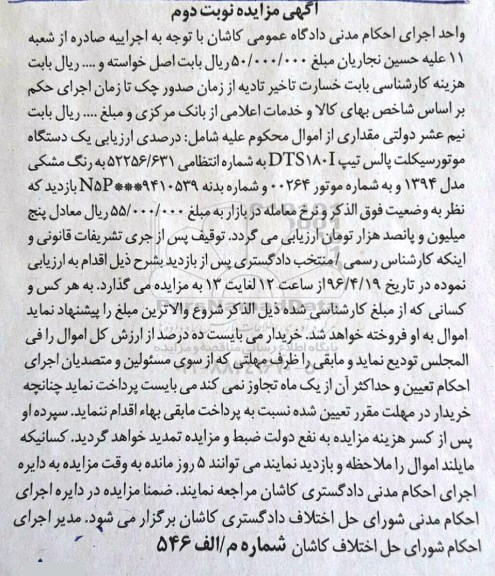 آگهی مزایده نوبت دوم
واحد اجرای احکام مدنی دادگاه عمومی کاشان با توجه به اجراییه صادره از شعبه
۱۱ علیه حسین نجاریان مبلغ ۵۰/۰۰۰/۰۰۰ ریال بابت اصل خواسته و .... ریال بابت
هزینه کارشناسی بابت خسارت تاخیر تادیه از زمان صدور چک تا زمان اجرای حکم
بر اساس شاخص بهای کالا و خدمات اعلامی از بانک مرکزی و مبلغ .... ریال بابت
نیم عشر دولتی مقداری از اموال محکوم علیه شامل: درصدی ارزیابی یک دستگاه
موتورسیکلت پالس تیپ DTS۱۸۰I به شماره انتظامی ۵۲۲۵۶/۶۳۱ به رنگ مشکی
مدل ۱۳۹۴ و به شماره موتور ۰۰۲۶۴ و شماره بدنه N۵P***۹۴۱۰۵۳۹ بازدید که
نظر به وضعیت فوق الذکر و نرخ معامله در بازار به مبلغ ۵۵/۰۰۰/۰۰۰ ریال معادل پنج
میلیون و پانصد هزار تومان ارزیابی می گردد. توقیف پس از جری تشریفات قانونی و
اینکه کارشناس رسمی / منتخب دادگستری پس از بازدید بشرح ذیل اقدام به ارزیابی
نموده در تاریخ ۹۶/۴/۱۹ از ساعت ۱۲ لغایت ۱۳ به مزایده می گذارد. به هر کس و
کسانی که از مبلغ کارشناسی شده ذیل الذکر شروع والاترین مبلغ را پیشنهاد نماید
اموال به او فروخته خواهد شد. خریدار می بایست ده درصد از ارزش کل اموال را فی
المجلس تودیع نماید و مابقی را ظرف مهلتی که از سوی مسئولین و متصدیان اجرای
احکام تعیین و حداکثر آن از یک ماه تجاوز نمی کند می بایست پرداخت نماید چنانچه
خریدار در مهلت مقرر تعیین شده نسبت به پرداخت مابقی بهاء اقدام ننماید. سپرده او
پس از کسر هزینه مزایده به نفع دولت ضبط و مزایده تمدید خواهد گردید. کسانیکه
مایلند اموال را ملاحظه و بازدید نمایند می توانند ۵ روز مانده به وقت مزایده به دایره
اجرای احکام مدنی دادگستری کاشان مراجعه نمایند. ضمنا مزایده در دایره اجرای
احکام مدنی شورای حل اختلاف دادگستری کاشان برگزار می شود. مدیر اجرای
احکام شورای حل اختلاف کاشان شماره م/الف ۵۴۶